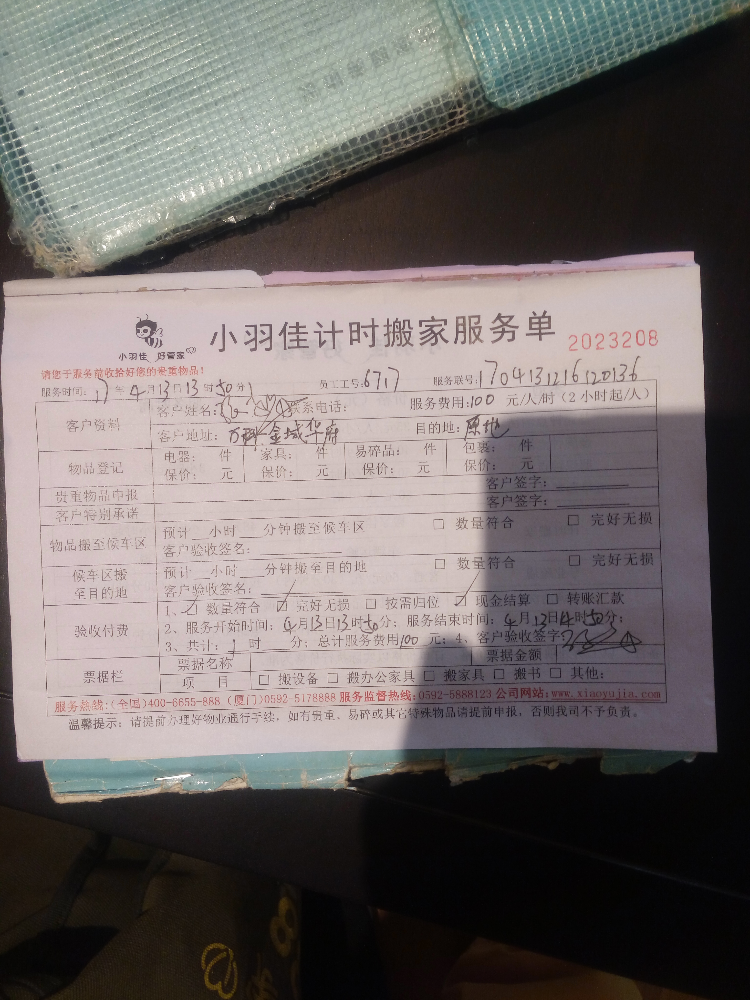 小羽佳 好管家
小羽佳计时搬家服务单
2023208
请您于服务前收给好您的贵重物品!
服务时间: 17年4月13日13时50分 员工工号:6717 服务联号:170413121612 0136
客户资料 客户姓名: 联系电话: 服务费用:100 元/人/时(2小时起/人)
客户地址: 万科金域华府 目的地: 原地
物品登记 电器: 件 家具: 件 易碎品: 件 包裹: 件
保价: 元 保价: 元 保价: 元 保价: 元
贵重物品申报 客户签字:
客户特别承诺 客户签字:
物品搬至候车区 预计 小时 分钟搬至候车区 □ 数量符合 □ 完好无损
客户验收签名:
候车区搬至目的地 预计 小时 分钟搬至目的地 □ 数量符合 □ 完好无损
客户验收签名:
验收付费 1、□ 数量符合 □ 完好无损 □ 按需归位 □ 现金结算 □ 转账汇款
2、服务开始时间: 4月13日13时50分; 服务结束时间: 4月13日14时50分;
3、共计: 1时 分; 总计服务费用100 元; 4、客户验收签字
票据栏 票据名称 票据金额
项 目 □ 搬设备 □ 搬办公家具 □ 搬家具 □ 搬书 □ 其他:
服务热线:(全国)400-6655-888 (厦门)0592-5178888 服务监督热线:0592-5888123 公司网站:www.xiaoyujia.com
温馨提示: 请提前办理好物业通行手续, 如有贵重、易碎或其它特殊物品请提前申报, 否则我司不予负责。